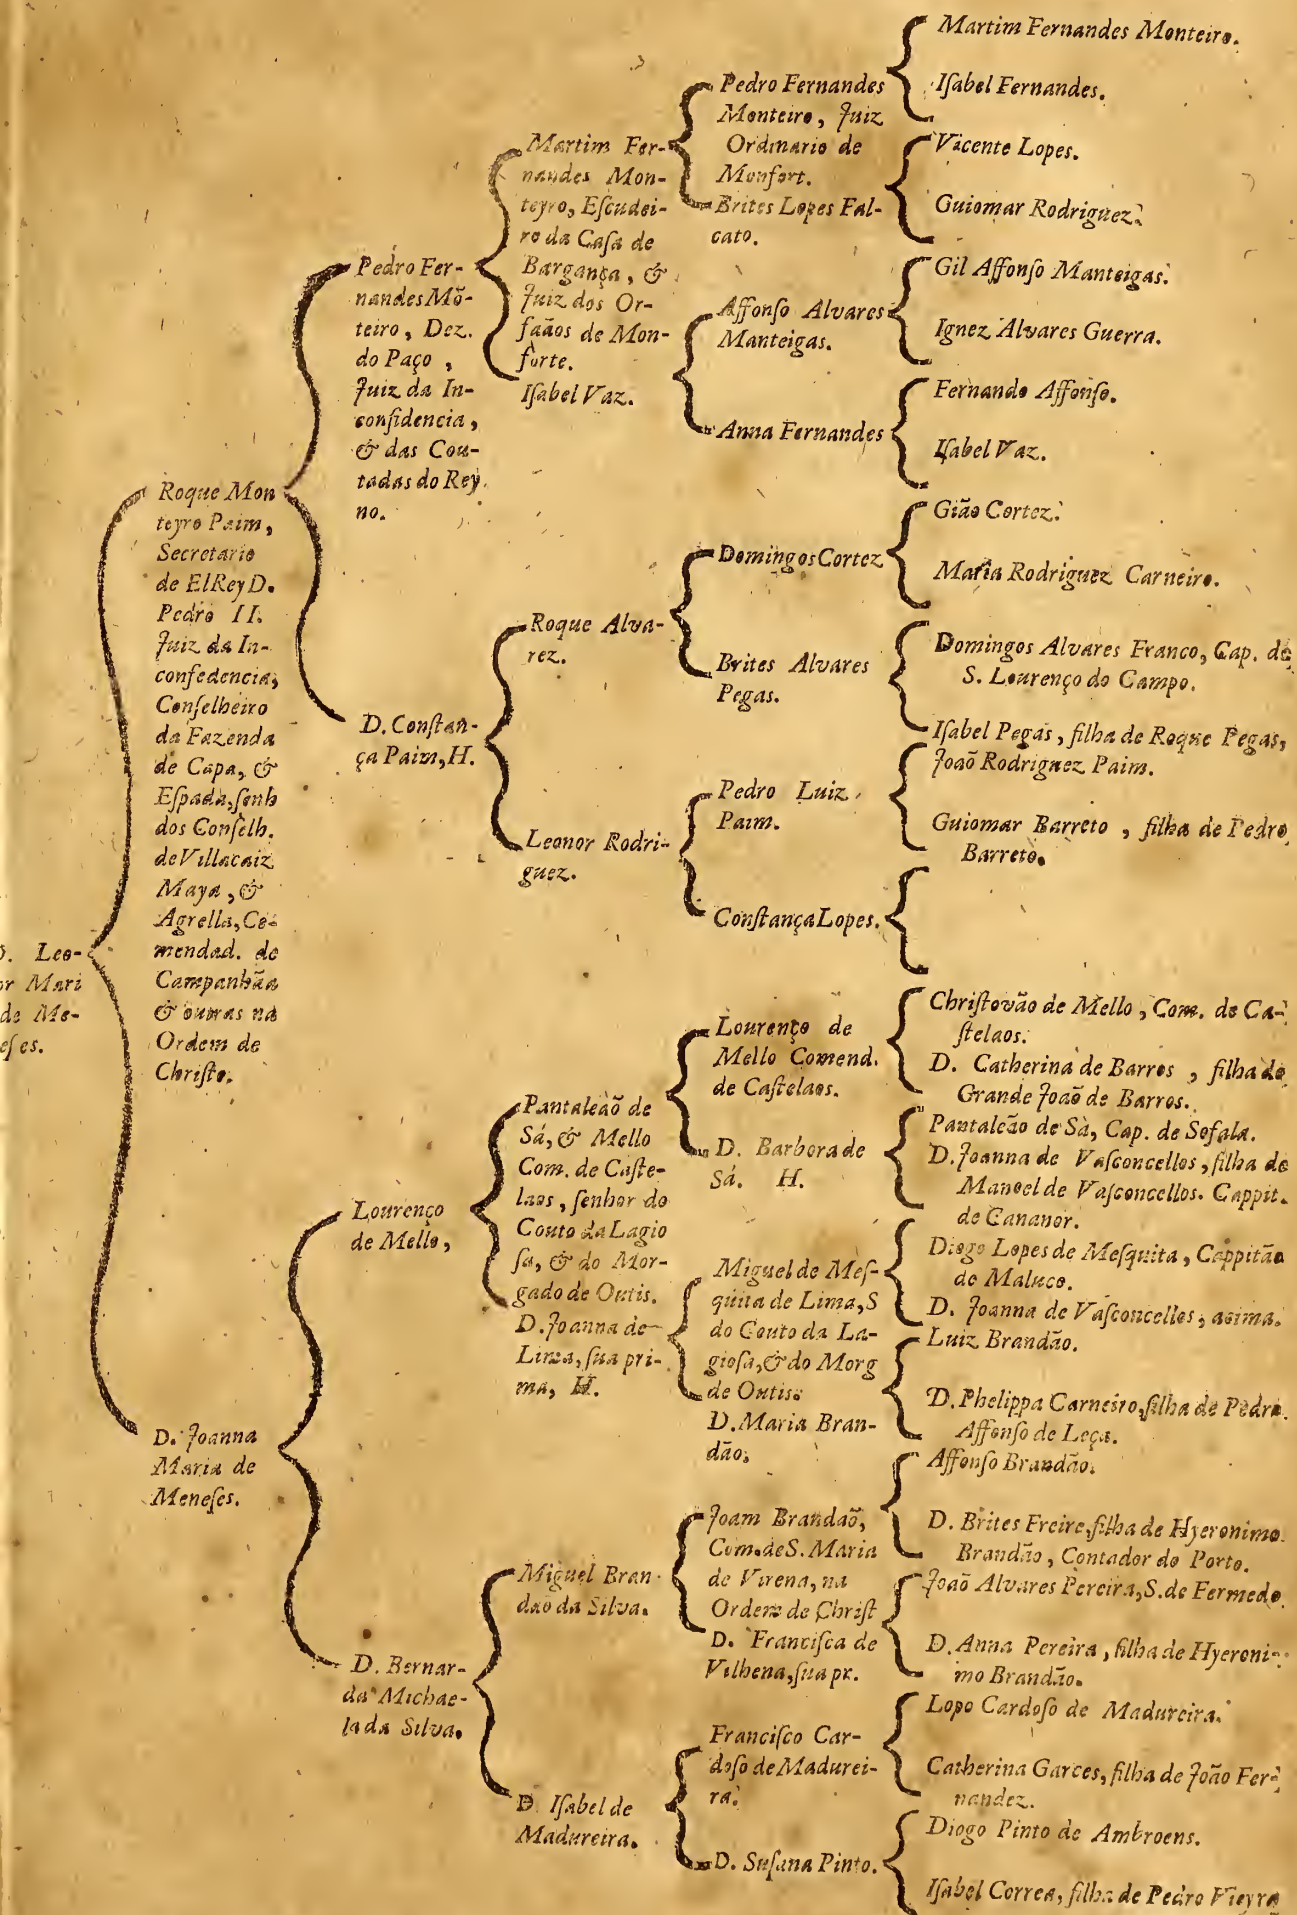 D. Leo-
or Mari
de Me-
eſes.
Roque Mon
teyro Paim,
Secretario
de ElRey D.
Pedro II.
Juiz da In-
confedencia,
Conſelheiro
da Fazenda
de Capa, &
Eſpada, ſenh
dos Conſelh.
de Villacaiz
Maya, &
Agrella, Co-
mendad. de
Campanhãa
& outras na
Ordem de
Chriſto.
D. Joanna
Maria de
Meneſes.
Pedro Fer-
nandes Mõ-
teiro, Dez.
do Paço,
Juiz da In-
confidencia,
& das Cou-
tadas do Rey
no.
D. Conſtan-
ça Paim, H.
Lourenço
de Mello,
D. Bernar-
da Michae-
la da Silva.
Martim Fer-
nandes Mon-
teyro, Eſcudei-
ro da Caſa de
Bargança, &
Juiz dos Or-
faãos de Mon-
forte.
Iſabel Vaz.
Roque Alva-
rez.
Leonor Rodri-
guez.
Pantaleaõ de
Sá, & Mello
Com. de Caſte-
laos, ſenhor do
Couto da Lagio
ſa, & do Mor-
gado de Outis.
D. Joanna de
Lima, ſua pri-
ma, H.
Miguel Bran-
daõ da Silva.
D. Iſabel de
Madureira.
Pedro Fernandes
Monteiro, Juiz
Ordinario de
Monfort.
Brites Lopes Fal-
cato.
Affonſo Alvares
Manteigas.
Anna Fernandes
Domingos Cortez
Brites Alvares
Pegas.
Pedro Luiz
Paim.
Conſtança Lopes.
Lourenço de
Mello Comend.
de Caſtelaos.
D. Barbora de
Sá. H.
Miguel de Meſ-
quita de Lima, S
do Couto da La-
gioſa, & do Morg
de Outis.
D. Maria Bran-
dão.
Joam Brandaõ,
Com. de S. Maria
de Virena, na
Ordem de Chriſt
D. Franciſca de
Vilhena, ſua pr.
Franciſco Car-
doſo de Madurei-
ra.
D. Suſana Pinto.
Martim Fernandes Monteiro.
Iſabel Fernandes.
Vicente Lopes.
Guiomar Rodriguez.
Gil Affonſo Manteigas.
Ignez Alvares Guerra.
Fernando Affonſo.
Iſabel Vaz.
Gião Cortez.
Maria Rodriguez Carneiro.
Domingos Alvares Franco, Cap. de
S. Lourenço do Campo.
Iſabel Pegas, filha de Roque Pegas,
Joaõ Rodriguez Paim.
Guiomar Barreto, filha de Pedro
Barreto.
Chriſtovão de Mello, Com. de Ca-
ſtelaos.
D. Catherina de Barros, filha do
Grande Joaõ de Barros.
Pantaleão de Sà, Cap. de Sofala.
D. Joanna de Vaſconcellos, filha de
Manoel de Vaſconcellos. Cappit.
de Cananor.
Diogo Lopes de Meſquita, Cappitão
de Maluco.
D. Joanna de Vaſconcellos, acima.
Luiz Brandão.
D. Phelippa Carneiro, filha de Pedro
Affonſo de Leça.
Affonſo Brandão.
D. Brites Freire, filha de Hyeronimo
Brandão, Contador do Porto.
Joaõ Alvares Pereira, S. de Fermedo.
D. Anna Pereira, filha de Hyeroni-
mo Brandão.
Lopo Cardoſo de Madureira.
Catherina Garces, filha de João Fer-
nandez.
Diogo Pinto de Ambroens.
Iſabel Correa, filha de Pedro Vieyra